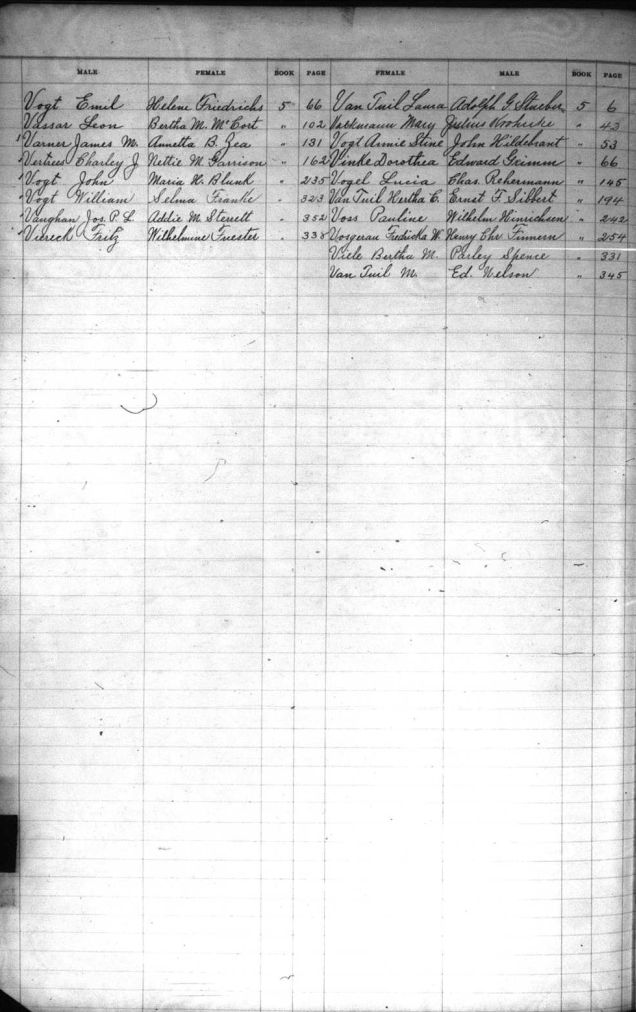 MALE FEMALE BOOK PAGE FEMALE MALE BOOK PAGE
Vogt Emil Helene Friedrichs 5 66 Van Tuil Laura Adolph G. Stueber 5 6
Vassar Leon Bertha M. McCort " 102 Mary Julius " 43
Varner James M. Annetta B. Zea " 131 Vogt Annie Stine John Hildebrant " 53
Charley J. Nettie M. Garrison " 162 Vinke Dorothea Edward Grimm " 66
Vogt John Maria H. Blunk " 235 Vogel Lucia Chas. Rehermann " 145
Vogt William Selma Franke " 323 Van Tuil Hertha C. Ernst F. Sibbert " 194
Vaughan Jos. P. L. Addie M. Sterrett " 352 Voss Pauline Wilhelm Hinrichsen " 242
Viereck Fritz Wilhelmine Fuester " 338 Vosgerau Fredricka W. Henry Chr Finnern " 254
Viele Bertha M. Parley Spence " 331
Van Tuil M. Ed. Nelson " 345